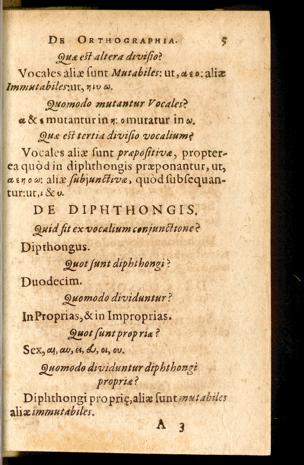 DE ORTHOGRAPHIA. 5
Quæ est altera divisio?
Vocales aliæ sunt Mutabiles: ut, α ε ο: aliæ
Immutabiles: ut, η ι υ ω.
Quomodo mutantur Vocales?
α & ε mutantur in η: ο mutatur in ω.
Quæ est tertia divisio vocalium?
Vocales aliæ sunt præpositivæ, propter-
ea quòd in diphthongis præponantur, ut,
α ε η ο ω: aliæ subjunctivæ, quòd subsequan-
tur: ut, ι & υ.
DE DIPHTHONGIS.
Quid fit ex vocalium conjunctione?
Dipthongus.
Quot sunt diphthongi?
Duodecim.
Quomodo dividuntur?
In Proprias, & in Improprias.
Quot sunt propriæ?
Sex, αι, αυ, ει, ευ, οι, ου.
Quomodo dividuntur diphthongi
propriæ?
Diphthongi proprię, aliæ sunt mutabiles
aliæ immutabiles.
A 3